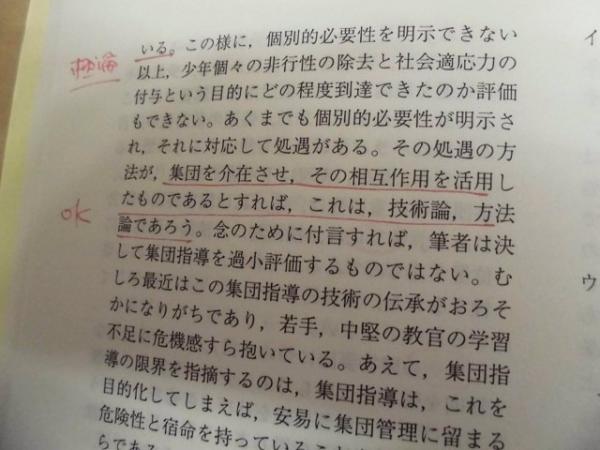 いる。この様に，個別的必要性を明示できない
以上，少年個々の非行性の除去と社会適応力の
付与という目的にどの程度到達できたのか評価
もできない。あくまでも個別的必要性が明示さ
れ，それに対応して処遇がある。その処遇の方
法が，集団を介在させ，その相互作用を活用し
たものであるとすれば，これは，技術論，方法
論であろう。念のために付言すれば，筆者は決
して集団指導を過小評価するものではない。む
しろ最近はこの集団指導の技術の伝承がおろそ
かになりがちであり，若手，中堅の教官の学習
不足に危機感すら抱いている。あえて，集団指
導の限界を指摘するのは，集団指導は，これを
目的化してしまえば，安易に集団管理に留まる
危険性と宿命を持っている
らである
極論
ok
イ
ウ